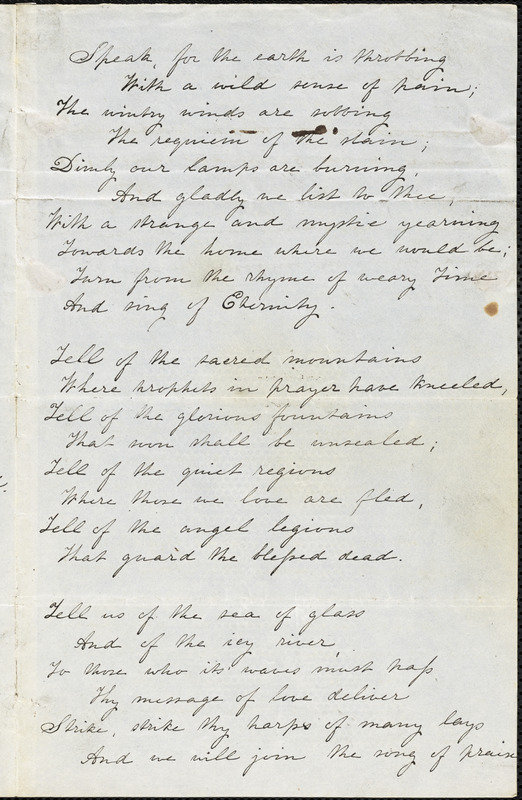 Speak, for the earth is throbbing
With a wild sense of pain;
The wintry winds are sobbing
The requiem of the slain;
Dimly our lamps are burning,
And gladly we list to thee,
With a strange and mystic yearning
Towards the home where we would be;
Turn from the rhyme of weary Time
And sing of Eternity.
Tell of the sacred mountains
Where prophets in prayer have kneeled,
Tell of the glorious fountains
That soon shall be unsealed;
Tell of the quiet regions
Where those we love are fled,
Tell of the angel legions
That guard the blessed dead.
Tell us of the sea of glass
And of the icy river,
To those who its waves must pass
Thy message of love deliver
Strike, strike thy harps of many lays
And we will join the song of praise